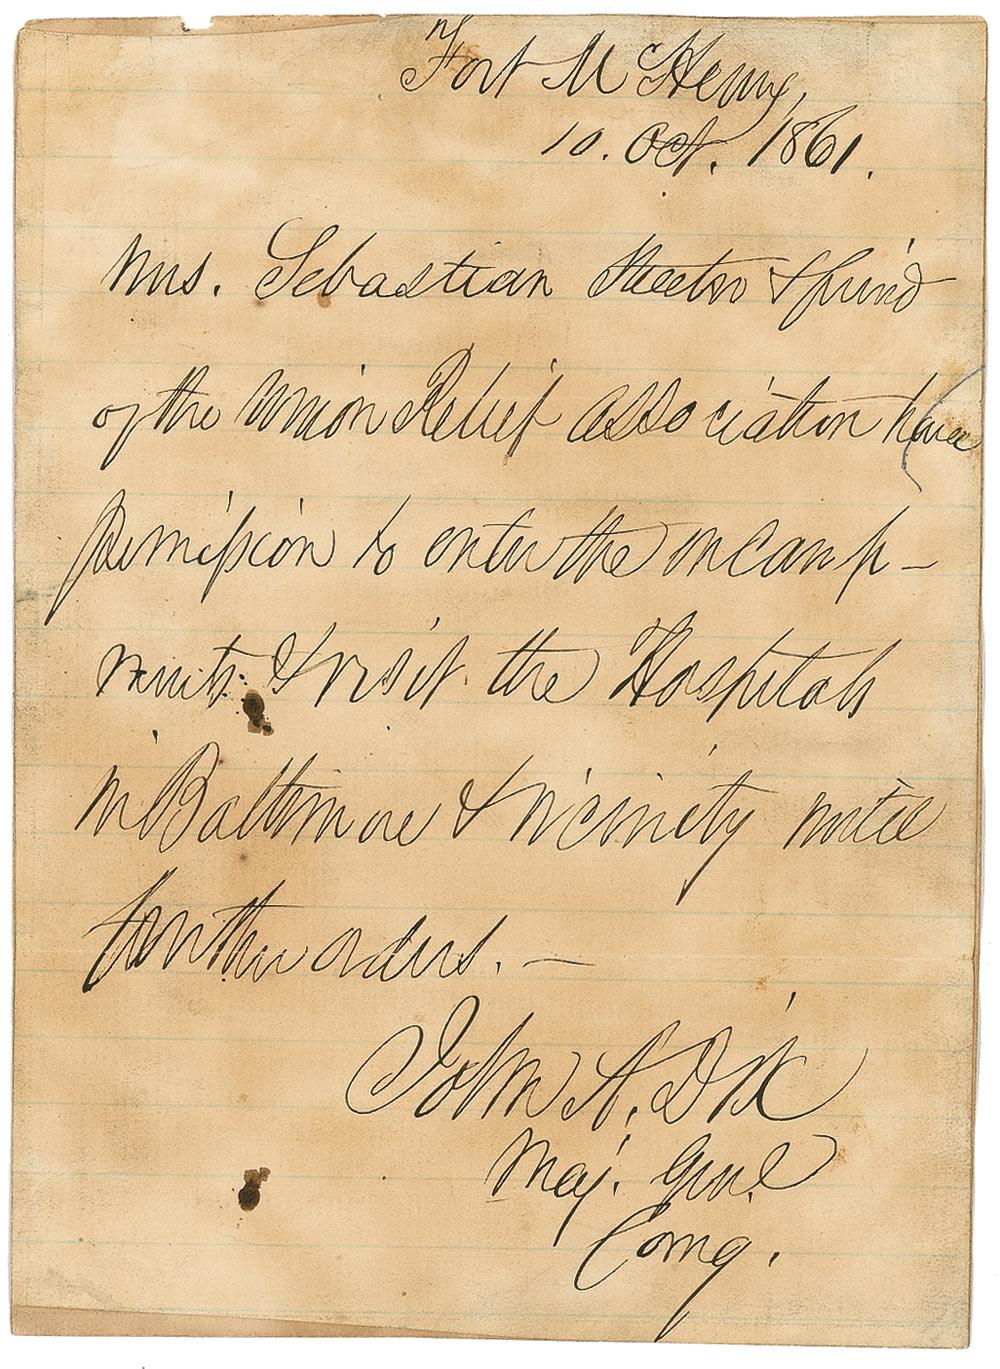 Fort McHenry,
10. Oct. 1861.
Mrs. Sebastian Streeter & friend
of the Union Relief Association have
permission to enter the encamp-
ments & visit the Hospitals
in Baltimore & vicinity until
further orders. —
John A. Dix
Maj. Genl
Comg.